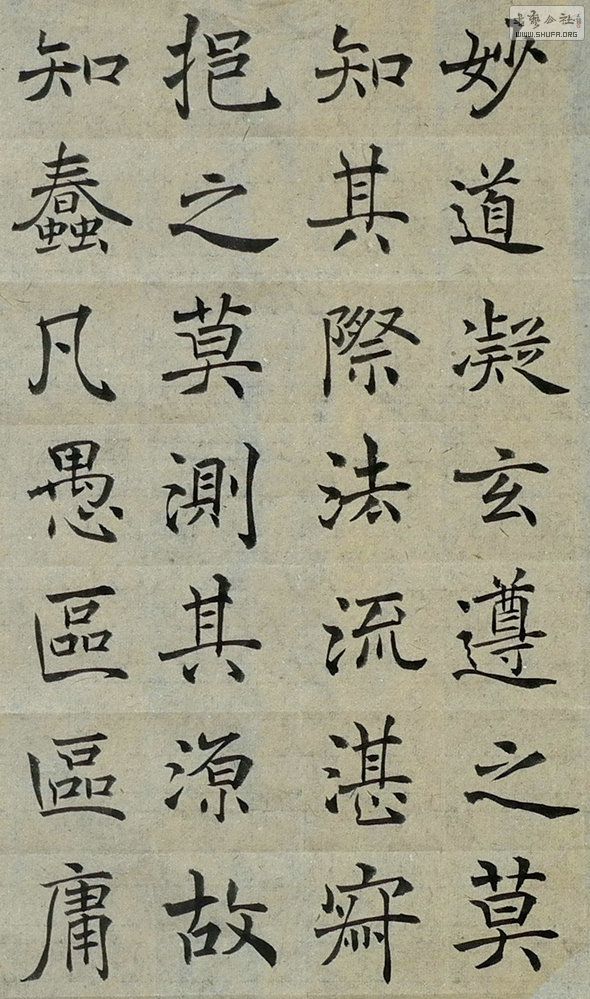 妙道凝玄遵之莫
知其際法流湛寂
挹之莫測其源故
知蠢凡愚區區庸
WWW.SHUFA.ORG